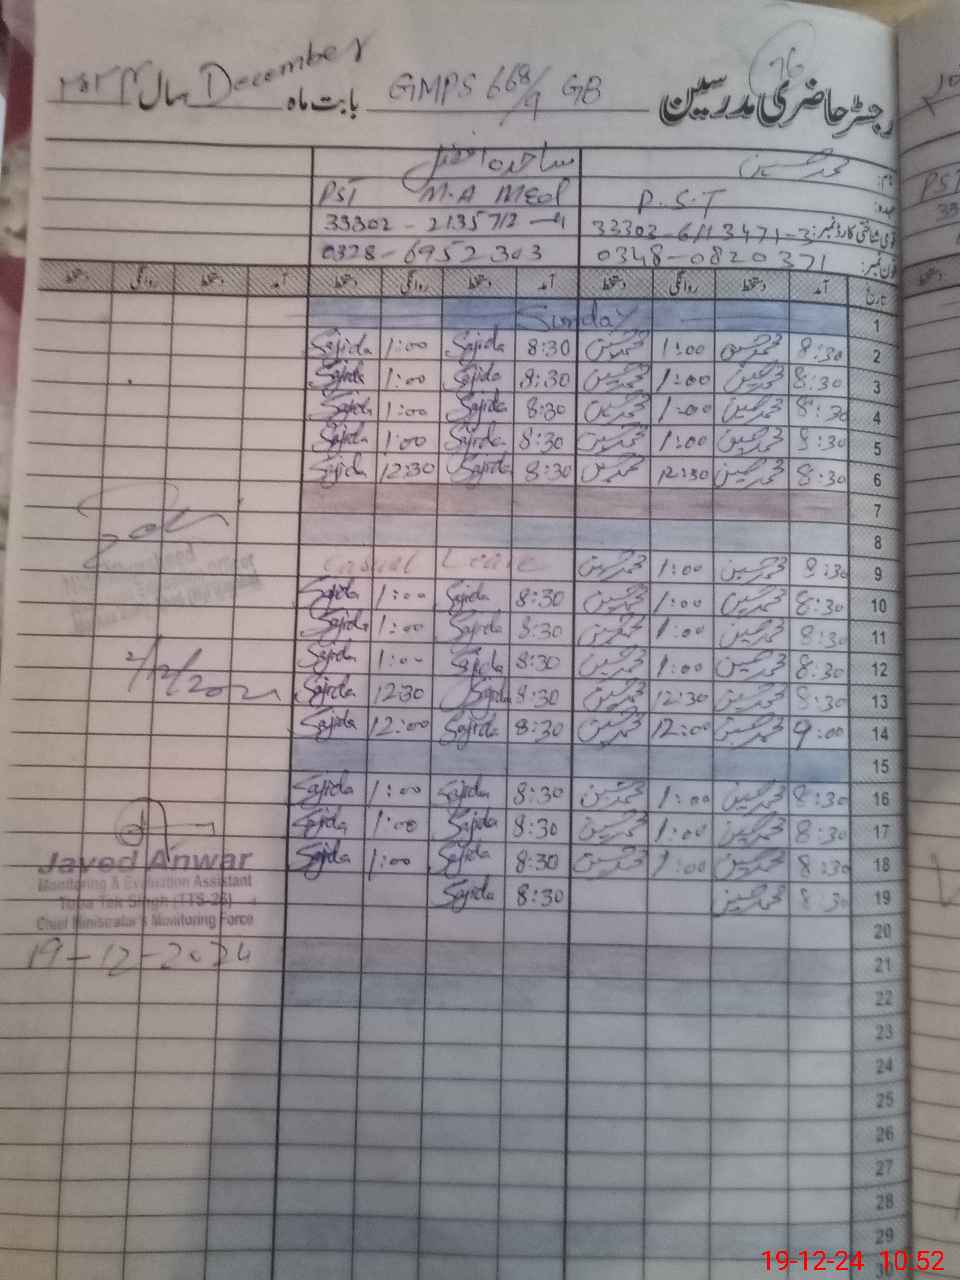 رجسٹر حاضری مدرسین GMPS 668/9 GB بابت ماہ December سال ۲۰۲۴
76
نام: محمد حسین ساجدہ افضل
عہدہ: P.S.T PST M.A MEd
قومی شناختی کارڈ نمبر: 33303-6113471-3 33302-2135712-4
فون نمبر: 0348-0820371 0328-6952303
تاریخ آمد دستخط روانگی دستخط آمد دستخط روانگی دستخط آمد دستخط روانگی دستخط
1 Sunday
2 8:30 محمد حسین 1:00 محمد حسین 8:30 Sajida 1:00 Sajida
3 8:30 محمد حسین 1:00 محمد حسین 8:30 Sajida 1:00 Sajida
4 8:30 محمد حسین 1:00 محمد حسین 8:30 Sajida 1:00 Sajida
5 8:30 محمد حسین 1:00 محمد حسین 8:30 Sajida 1:00 Sajida
6 8:30 محمد حسین 12:30 محمد حسین 8:30 Sajida 12:30 Sajida
7
8
9 8:30 محمد حسین 1:00 محمد حسین Casual Leave
10 8:30 محمد حسین 1:00 محمد حسین 8:30 Sajida 1:00 Sajida
11 8:30 محمد حسین 1:00 محمد حسین 8:30 Sajida 1:00 Sajida
12 8:30 محمد حسین 1:00 محمد حسین 8:30 Sajida 1:00 Sajida
13 8:30 محمد حسین 12:30 محمد حسین 8:30 Sajida 12:30 Sajida
14 9:00 محمد حسین 12:00 محمد حسین 8:30 Sajida 12:00 Sajida
15
16 8:30 محمد حسین 1:00 محمد حسین 8:30 Sajida 1:00 Sajida
17 8:30 محمد حسین 1:00 محمد حسین 8:30 Sajida 1:00 Sajida
18 8:30 محمد حسین 1:00 محمد حسین 8:30 Sajida 1:00 Sajida
19 8:30 محمد حسین 8:30 Sajida
20
21
22
23
24
25
26
27
28
29
30
Javed Anwar
Monitoring & Evaluation Assistant
Toba Tek Singh (TTS-26)
Chief Ministrator's Monitoring Force
19-12-2024
19-12-24 10.52